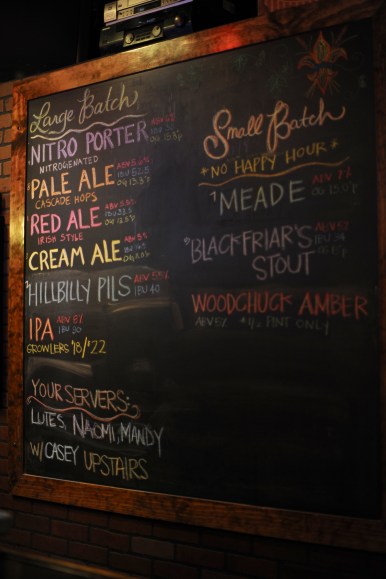 Large Batch
NITRO PORTER
NITROGENATED
PALE ALE ABV 5.6%
CASCADE HOPS
RED ALE ABV 5.5%
IRISH STYLE
CREAM ALE
HILLBILLY PILS
IBU 40
IPA
IBU 30
GROWLERS $18/$22
YOUR SERVERS:
LUTES, NAOMI, MANDY
W/ CASEY UPSTAIRS
Small Batch
*NO HAPPY HOUR*
MEADE
BLACKFRIAR'S
STOUT
WOODCHUCK AMBER
*1/2 PINT ONLY